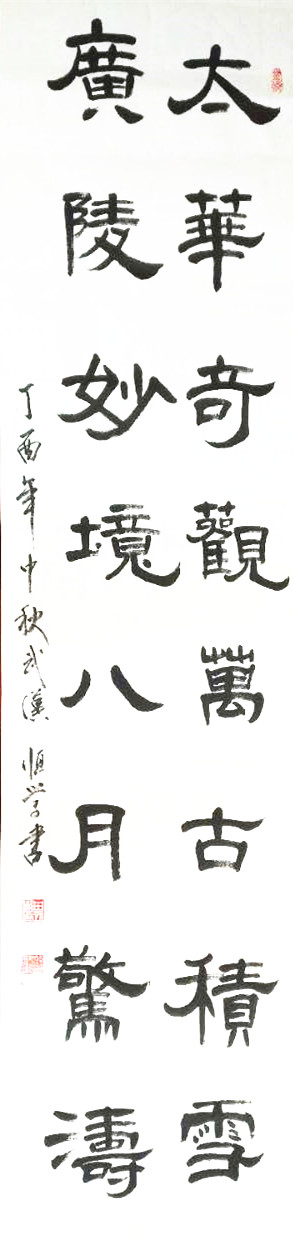 太華奇觀萬古積雪
廣陵妙境八月驚濤
丁酉年中秋武漢恒学書